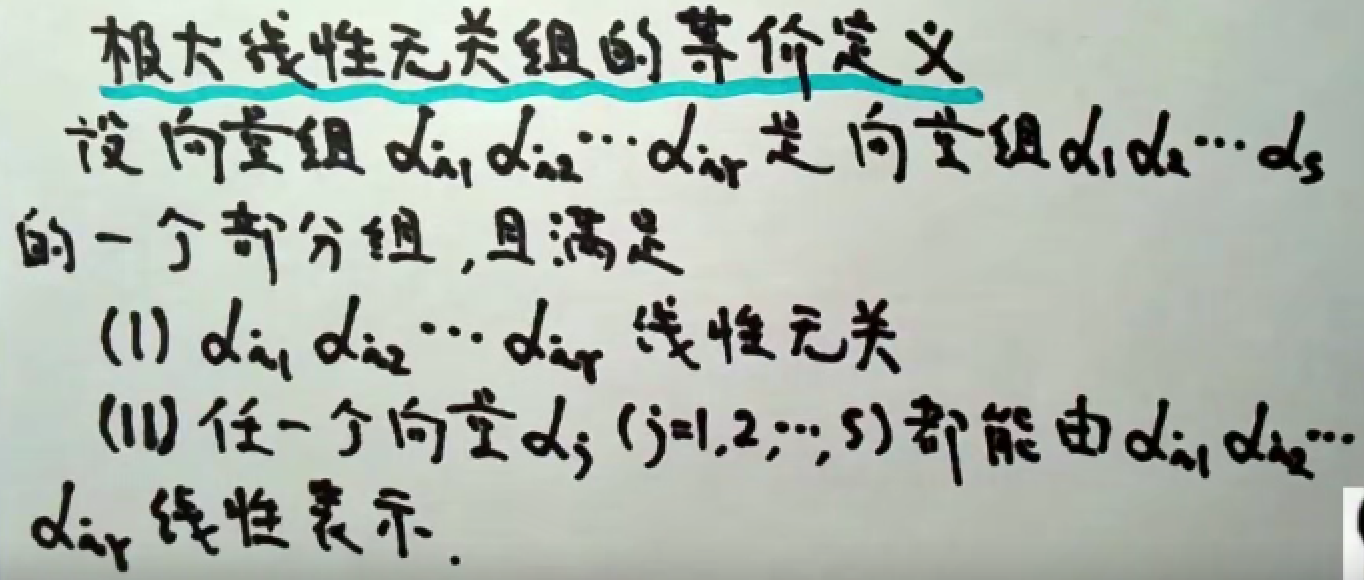 极大线性无关组的等价定义
设向量组 αi1 αi2 ⋯ αir 是向量组 α1 α2 ⋯ αs
的一个部分组,且满足
(I) αi1 αi2 ⋯ αir 线性无关
(II) 任一个向量 αj (j=1,2,⋯,s) 都能由 αi1 αi2 ⋯
αir 线性表示.